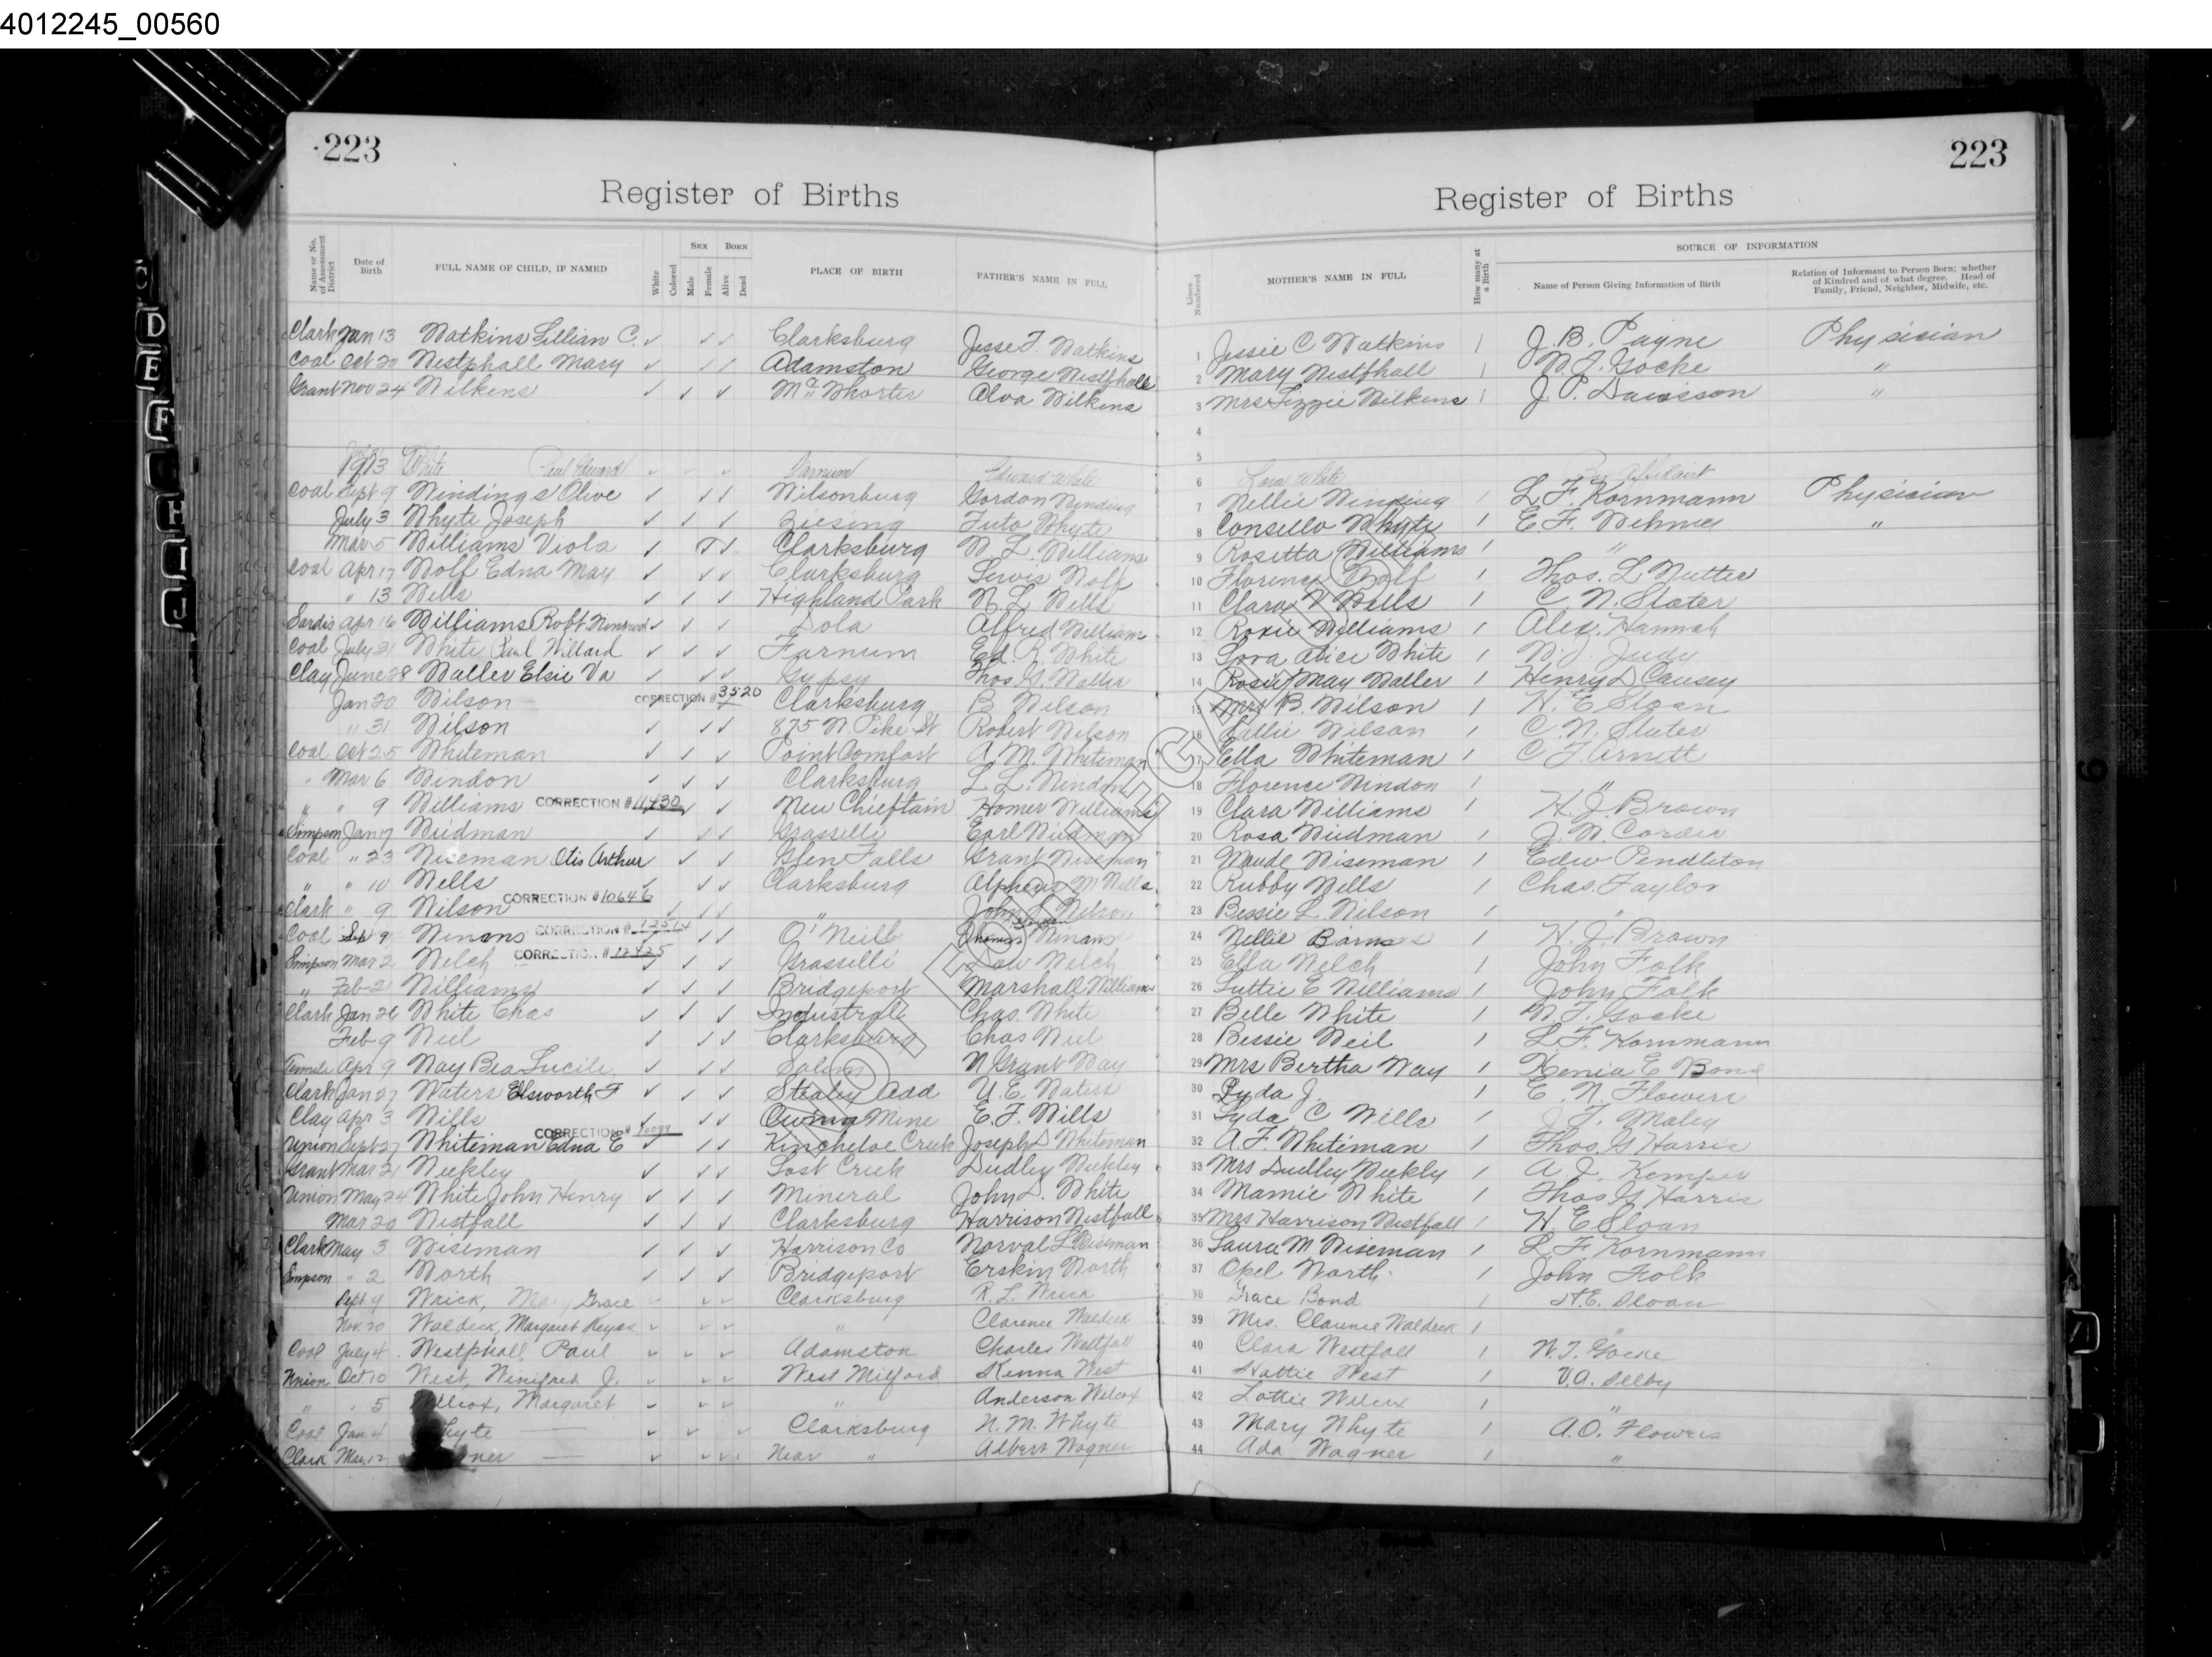 4012245_00560
223
223
Register of Births
Register of Births
Name or No. of Assessment District
Date of Birth
FULL NAME OF CHILD, IF NAMED
White
Colored
SEX
Male
Female
BORN
Alive
Dead
PLACE OF BIRTH
FATHER'S NAME IN FULL
Lines Numbered
MOTHER'S NAME IN FULL
How many at a Birth
SOURCE OF INFORMATION
Name of Person Giving Information of Birth
Relation of Informant to Person Born; whether of Kindred and of what degree. Head of Family, Friend, Neighbor, Midwife, etc.
Clark Jan 13 Watkins Lillian C. ✓ ✓ ✓ Clarksburg Jesse F. Watkins 1 Jessie C Watkins 1 J. B. Payne Physician
Coal Oct 20 Westphall Mary ✓ ✓ ✓ Adamston George Westfhall 2 Mary Westfhall 1 W. T. Gocke "
Grant Nov 24 Wilkens ✓ ✓ ✓ McWhorter Alva Wilkens 3 Mrs Lizzie Wilkens 1 J. P. Davisson "
4
5
1913 White Paul Edward ✓ ✓ Farnum Edward White 6 Lora White By Affidavit
Coal Sept 9 Windings Olive ✓ ✓ ✓ Wilsonburg Gordon Winding 7 Nellie Winding 1 L. F. Kornmann Physician
July 3 Whyte Joseph ✓ ✓ ✓ Ziesing Tuto Whyte 8 Consello Whyte 1 E. F. Wehner "
Mar 5 Williams Viola ✓ ✓ ✓ Clarksburg W. L. Williams 9 Rosetta Williams 1 "
Coal Apr 17 Wolf Edna May ✓ ✓ ✓ Clarksburg Lewis Wolf 10 Florence Wolf 1 Thos. L Nutter
" 13 Wells ✓ ✓ ✓ Highland Park N. L. Wells 11 Clara V Wells 1 C. N. Slater
Sardis Apr 16 Williams Robt ✓ ✓ ✓ Dola Alfred William 12 Roxie Williams 1 Alex. Hannah
Coal July 31 White Paul Willard ✓ ✓ ✓ Farnum Ed. R. White 13 Lora Alice White 1 W. J. Judy
Clay June 28 Waller Elsie Va ✓ ✓ ✓ Gypsy Thos. G. Waller 14 Rosie May Waller 1 Henry D Causey
Jan 20 Wilson CORRECTION # 3520 Clarksburg B Wilson 15 Mrs B. Wilson 1 H. E Sloan
" 31 Wilson ✓ ✓ ✓ 875 W. Pike St Robert Wilson 16 Callie Wilson 1 C. N. Slater
Coal Oct 25 Whiteman ✓ ✓ ✓ Point Comfort A. M. Whiteman 17 Ella Whiteman 1 C F. Arnett
" Mar 6 Windon ✓ ✓ ✓ Clarksburg L L. Windon 18 Florence Windon 1 "
" " 9 Williams CORRECTION # 11430 ✓ ✓ New Chieftain Homer Williams 19 Clara Williams 1 H. J. Brown
Simpson Jan 17 Wiedman ✓ ✓ ✓ Grasselli Earl Wiedman 20 Rosa Wiedman 1 J. W. Corder
Coal " 23 Wiseman Otis Arthur ✓ ✓ ✓ Glen Falls Grant Wiseman 21 Maude Wiseman 1 Edw Pendleton
" " 10 Wells ✓ ✓ ✓ Clarksburg Alpheus M Wells 22 Rubby Wells 1 Chas. Taylor
Clark " 9 Wilson CORRECTION # 10646 ✓ ✓ ✓ " John L Wilson 23 Bessie L. Wilson 1 "
Coal Sep 9 Winans CORRECTION # 12514 ✓ ✓ O'Neill Thomas Winans 24 Nellie Barnes 1 H. J. Brown
Simpson Mar 2 Welch CORRECTION # 12425 ✓ ✓ ✓ Grasselli Law Welch 25 Ella Welch 1 John Folk
" Feb 21 Williams ✓ ✓ ✓ Bridgeport Marshall Williams 26 Luttie E Williams 1 John Folk
Clark Jan 26 White Chas ✓ ✓ ✓ Industrial Chas. White 27 Belle White 1 W. T. Gocke
Feb 9 Weil ✓ ✓ ✓ Clarksburg Chas Weil 28 Bessie Weil 1 L. F. Kornmann
Apr 9 Way Bea Lucile ✓ ✓ ✓ Salem W Grant Way 29 Mrs Bertha Way 1 Xenia E Bond
Clark Jan 27 Waters Ellsworth F ✓ ✓ ✓ Stealey Add U. E. Waters 30 Lyda J. 1 E. N. Flowers
Clay Apr 3 Wills ✓ ✓ ✓ Owing Mine E. F. Wills 31 Lyda C Wills 1 J. T. Maley
Union Sept 27 Whiteman Edna E CORRECTION # ✓ ✓ ✓ Kincheloe Creek Joseph D Whiteman 32 A. F. Whiteman 1 Thos. G Harris
Grant Mar 21 Weekley ✓ ✓ ✓ Lost Creek Dudley Weekley 33 Mrs Dudley Weekly 1 A. J. Kemper
Union May 24 White John Henry ✓ ✓ ✓ Mineral John D. White 34 Mamie White 1 Thos. G Harris
Mar 20 Westfall ✓ ✓ ✓ Clarksburg Harrison Westfall 35 Mrs Harrison Westfall 1 H. E Sloan
Clark May 3 Wiseman ✓ ✓ ✓ Harrison Co Norval L Wiseman 36 Laura M Wiseman 1 L. F. Kornmann
Simpson " 2 Worth ✓ ✓ ✓ Bridgeport Erskin Worth 37 Opel Worth 1 John Folk
Sept. 9 Wrick, Mary Grace ✓ ✓ ✓ Clarksburg R. L. Wrick 38 Grace Bond 1 H. E. Sloan
Nov. 20 Waldeck, Margaret Keyes ✓ ✓ ✓ " Clarence Waldeck 39 Mrs. Clarence Waldeck 1 "
Coal July 4 Westphall, Paul ✓ ✓ ✓ Adamston Charles Westfall 40 Clara Westfall 1 W. T. Gocke
Union Oct 10 West, Winifred J. ✓ ✓ ✓ West Milford Kenna West 41 Hattie West 1 V. A. Selby
" " 5 Willcox, Margaret ✓ ✓ ✓ " Anderson Wilcox 42 Lottie Wilcox 1 "
Coal Jan 4 Whyte ✓ ✓ ✓ Clarksburg N. M. Whyte 43 Mary Whyte 1 A. O. Flowers
Clark Mar. 12 Wagner ✓ ✓ ✓ Near " Albert Wagner 44 Ada Wagner 1 "
NOT FOR LEGAL
D
E
F
G
H
I
J